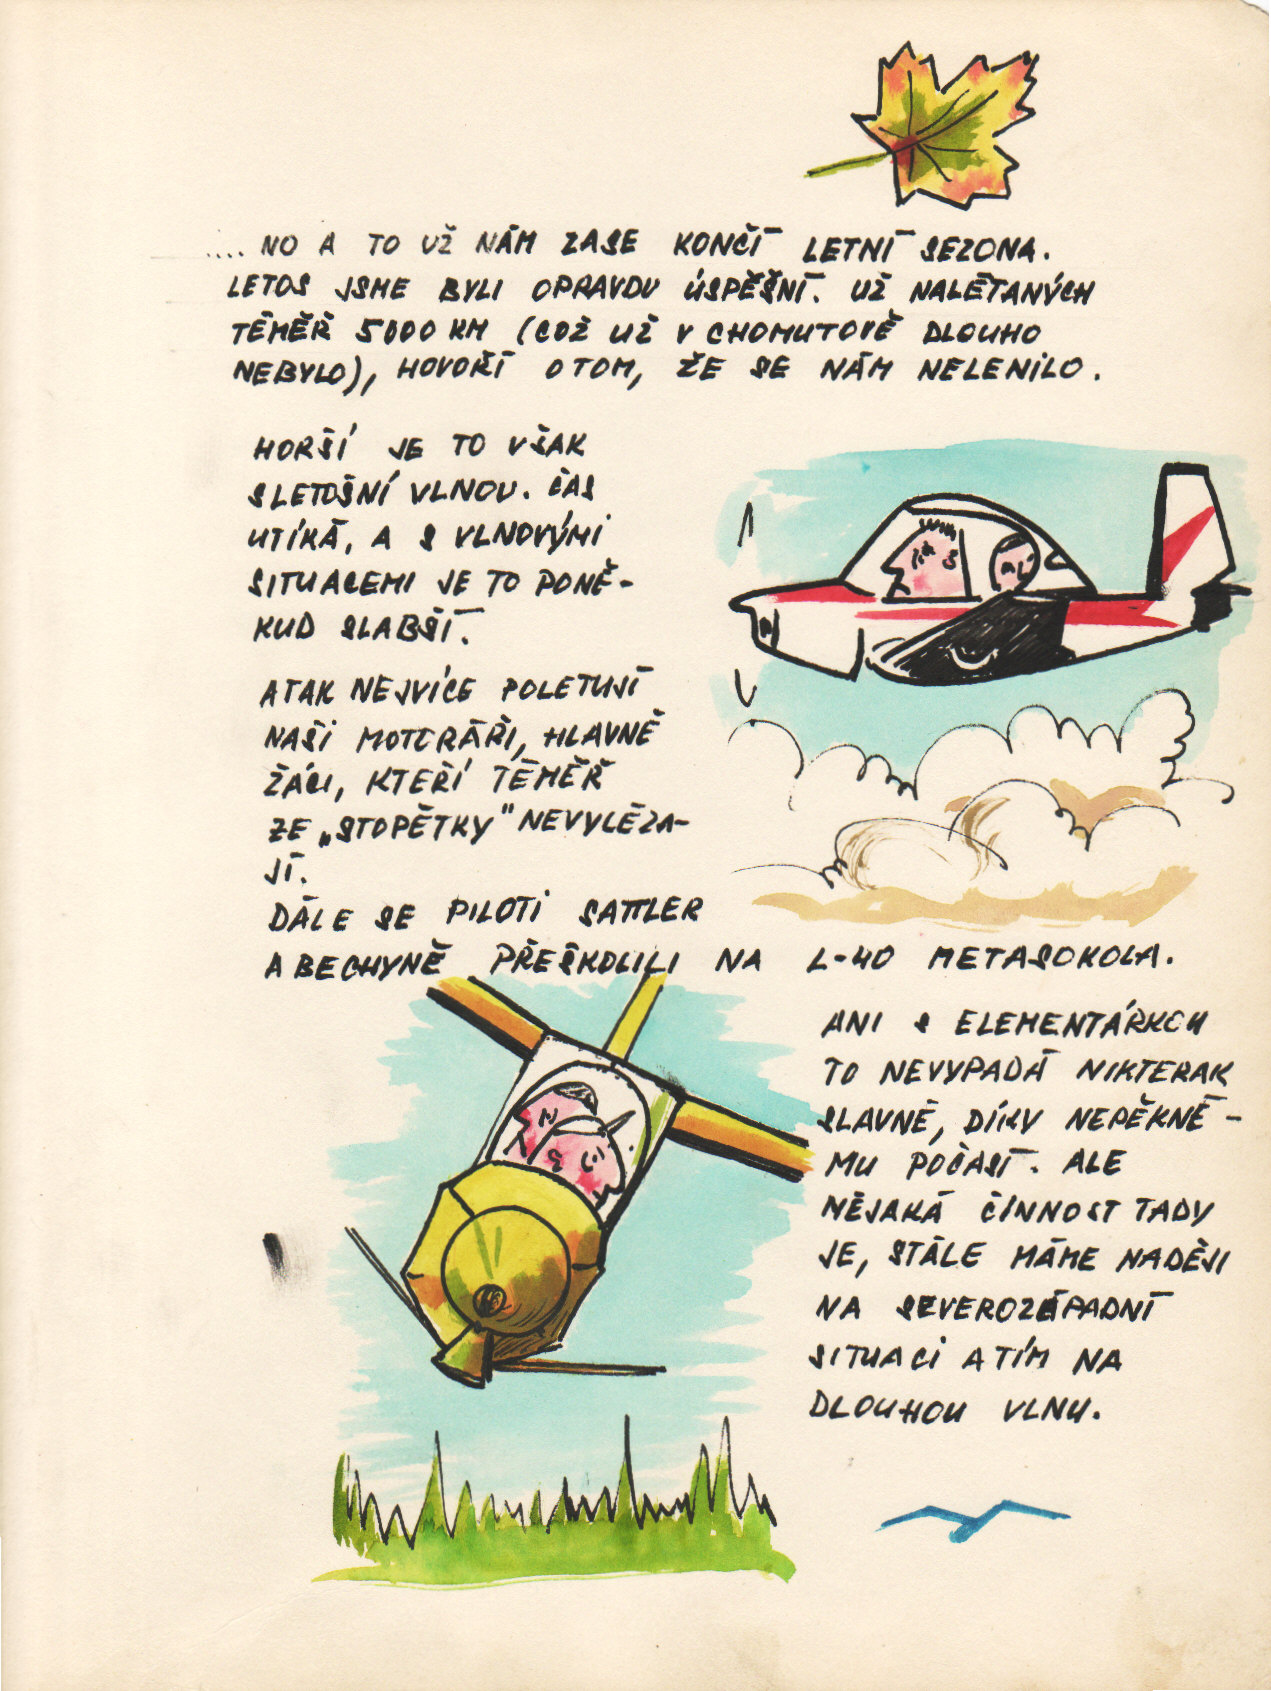 .... NO A TO UŽ NÁM ZASE KONČÍ LETNÍ SEZONA.
LETOS JSME BYLI OPRAVDU ÚSPĚŠNÍ. UŽ NALÉTANÝCH
TÉMĚŘ 5000 KM (COŽ UŽ V CHOMUTOVĚ DLOUHO
NEBYLO), HOVOŘÍ O TOM, ŽE SE NÁM NELENILO.
HORŠÍ JE TO VŠAK
S LETOŠNÍ VLNOU. ČAS
UTÍKÁ, A S VLNOVÝMI
SITUACEMI JE TO PONĚ-
KUD SLABŠÍ.
A TAK NEJVÍCE POLETUJÍ
NAŠI MOTORÁŘI, HLAVNĚ
ŽÁCI, KTEŘÍ TÉMĚŘ
ZE „STOPĚTKY" NEVYLÉZA-
JÍ.
DÁLE SE PILOTI SATTLER
A BECHYNĚ PŘEŠKOLILI NA L-40 METASOKOLA.
ANI S ELEMENTÁRKOU
TO NEVYPADÁ NIKTERAK
SLAVNĚ, DÍKY NEPĚKNÉ-
MU POČASÍ. ALE
NĚJAKÁ ČINNOST TADY
JE, STÁLE MÁME NADĚJI
NA SEVEROZÁPADNÍ
SITUACI A TÍM NA
DLOUHOU VLNU.